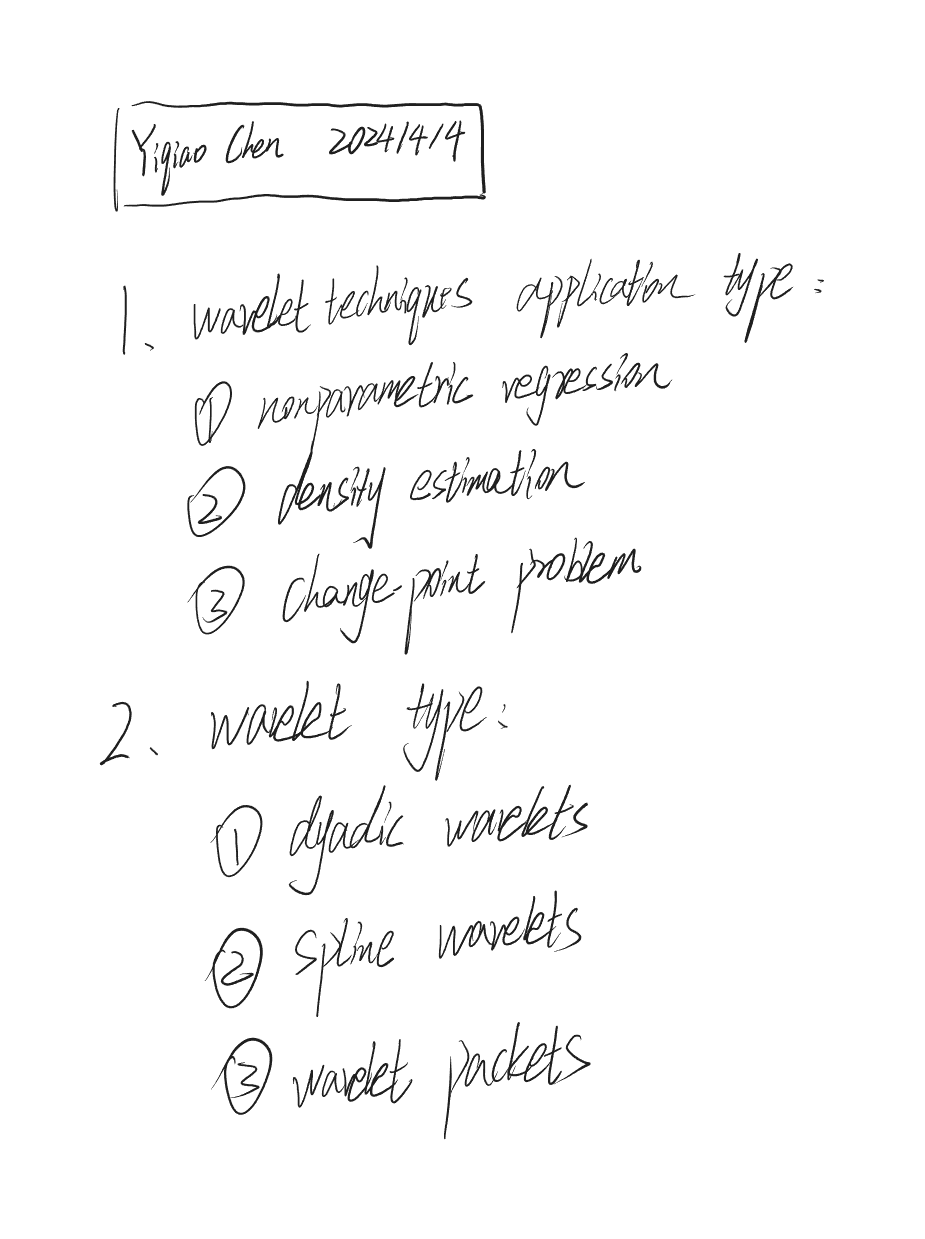 Yiqiao Chen 2024/4/4
1、wavelet techniques application type:
① nonparametric regression
② density estimation
③ change-point problem
2、wavelet type:
① dyadic wavelets
② spline wavelets
③ wavelet packets